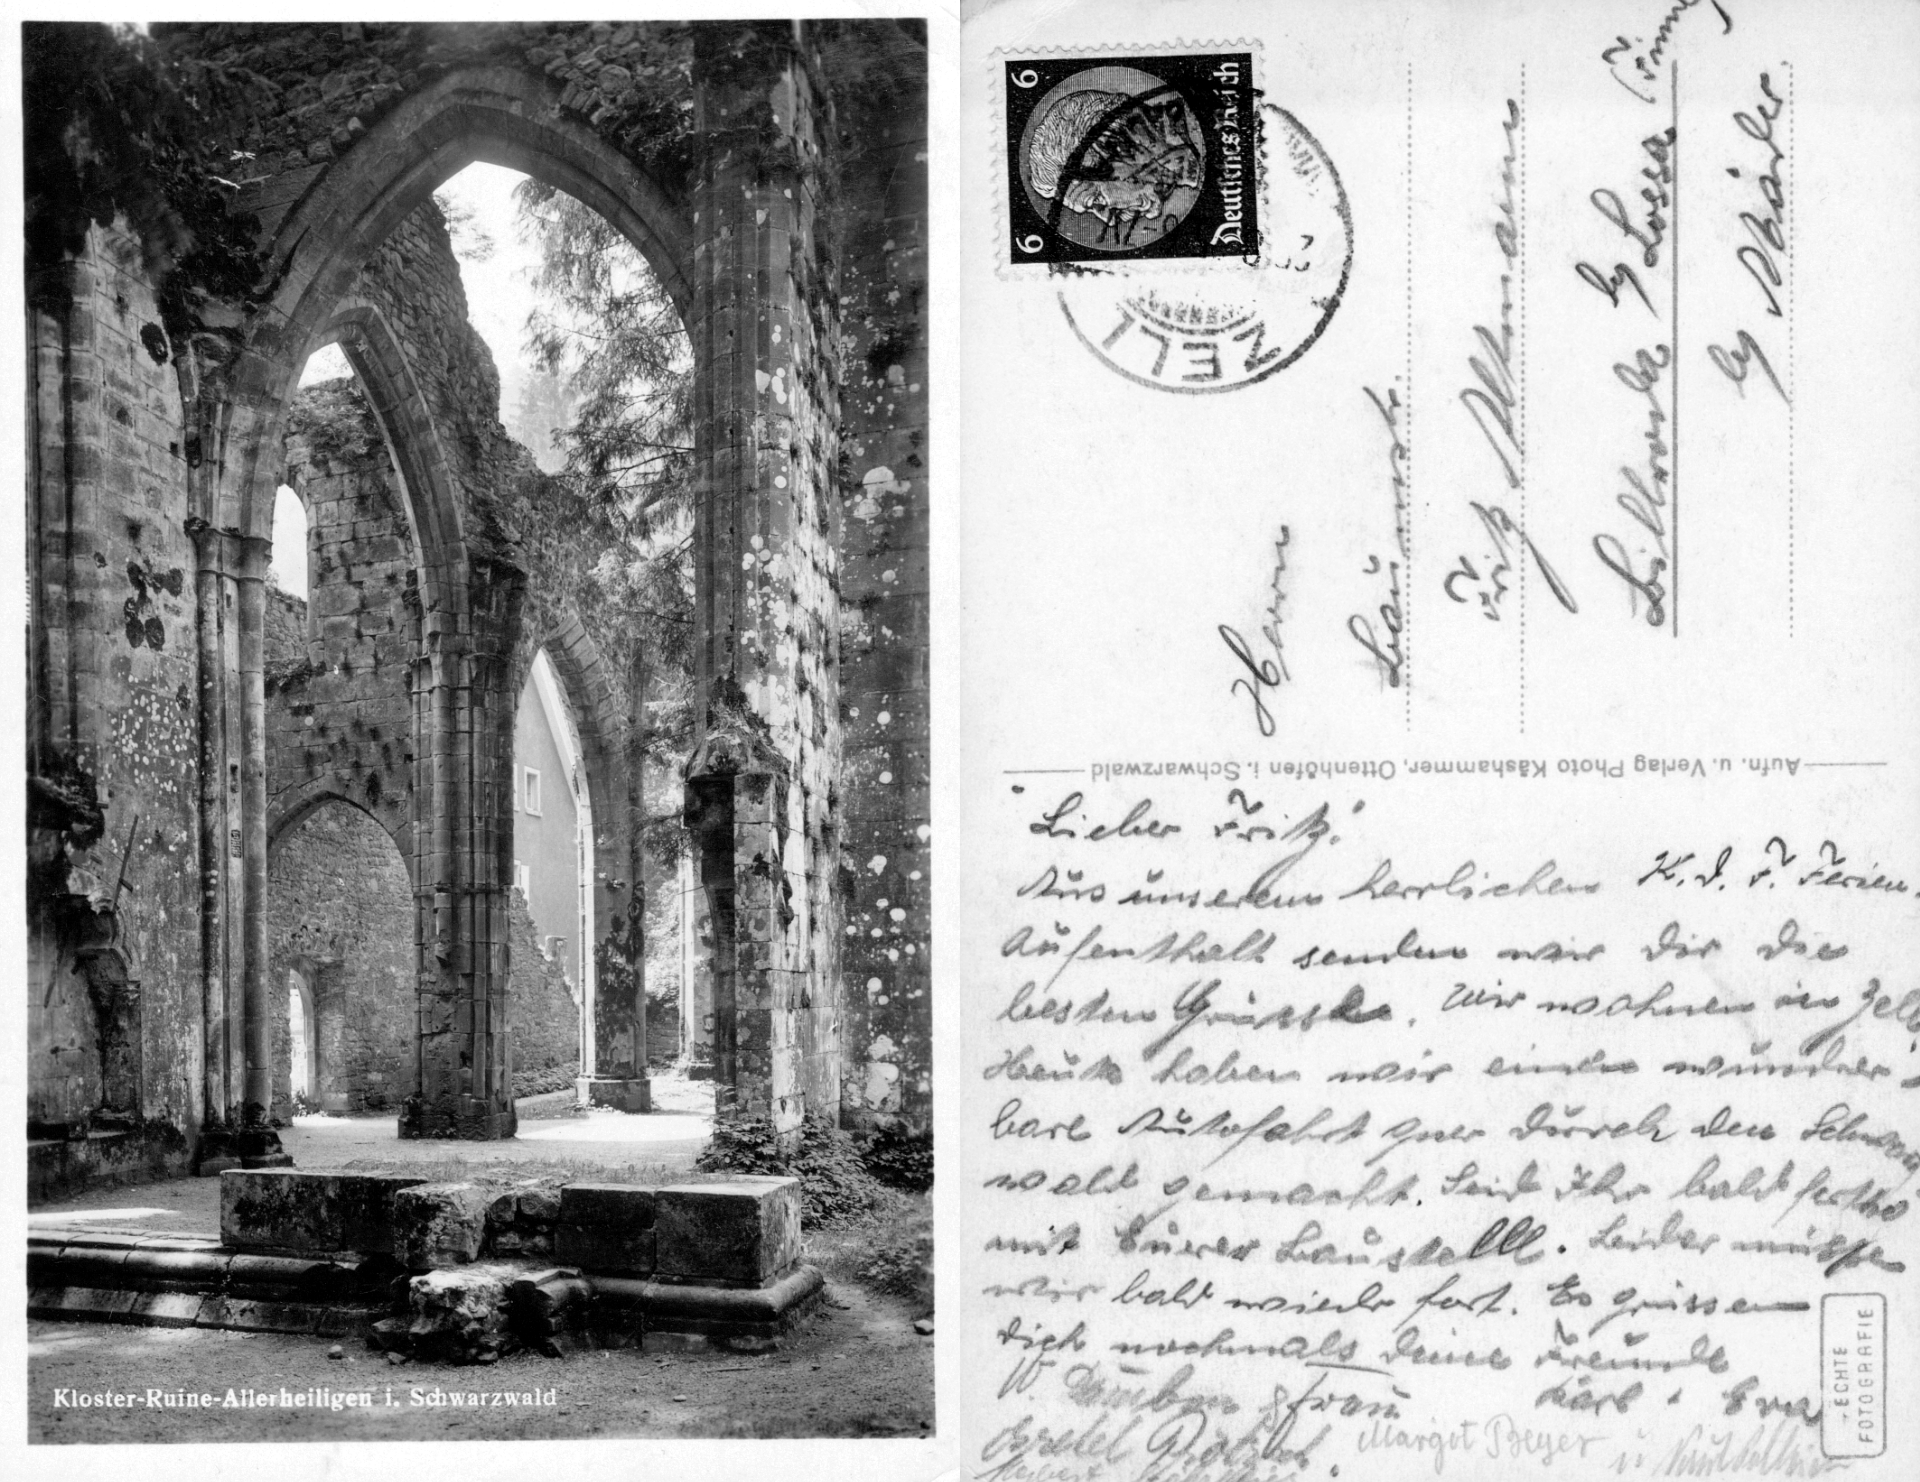 Kloster-Ruine-Allerheiligen i. Schwarzwald
6
6
Deutsches Reich
ZELL
Herrn
Baumstr.
Fritz Altmann
Billroda by Lossa
by
Aufn. u. Verlag Photo Käshammer, Ottenhöfen i. Schwarzwald
Lieber Fritz!
Aus unserem herrlichen K.d.F. Ferien-
Aufenthalt senden wir Dir die
besten Grüsse. Wir wohnen in Zell.
Heute haben wir einen wunder-
bare Autofahrt quer durch den Schwarz
wald gemacht. Seid Ihr bald fertig
mit Eurer Baustelle. Leider müssen
wir bald wieder fort. Es grüssen
Dich nochmals Deine Freunde
Karl + Eva
W. Dauben & Frau
Gretel
Margot Beyer
u
ECHTE
FOTOGRAFIE